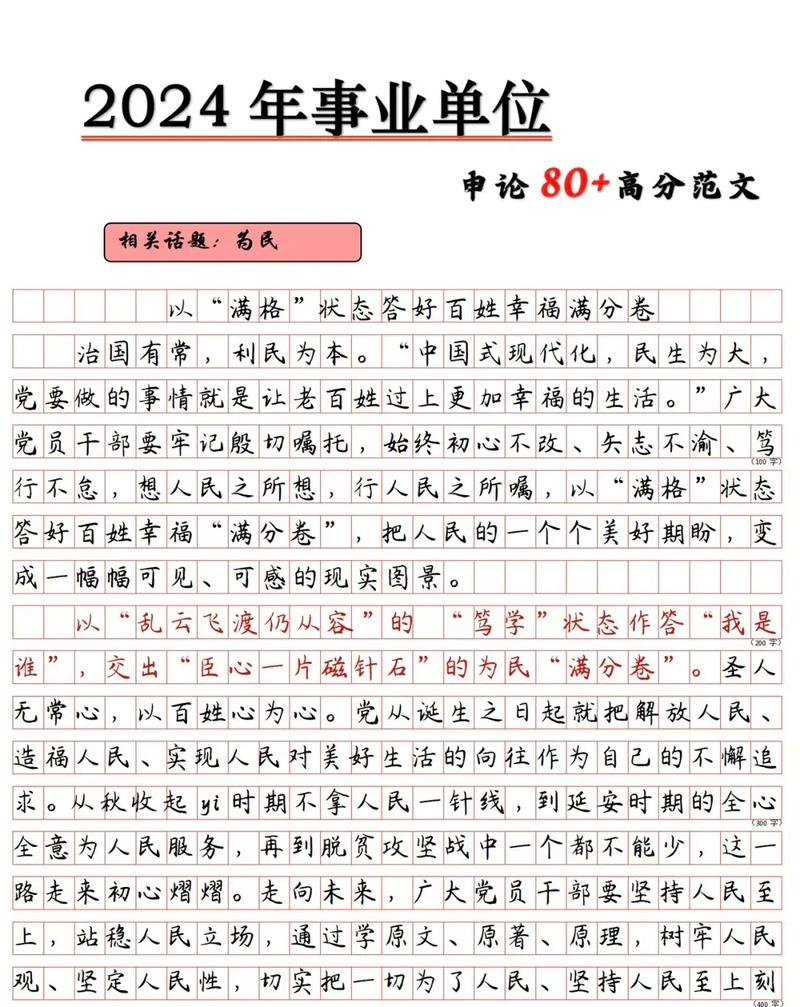 2024 年事业单位
申论 80+高分范文
相关话题：为民
以“满格”状态答好百姓幸福满分卷
治国有常，利民为本。“中国式现代化，民生为大，
党要做的事情就是让老百姓过上更加幸福的生活。”广大
党员干部要牢记殷切嘱托，始终初心不改、矢志不渝、笃
（100 字）
行不怠，想人民之所想，行人民之所嘱，以“满格”状态
答好百姓幸福“满分卷”，把人民的一个个美好期盼，变
成一幅幅可见、可感的现实图景。
以“乱云飞渡仍从容”的 “笃学”状态作答“我是
（200 字）
谁”，交出“臣心一片磁针石”的为民“满分卷”。圣人
无常心，以百姓心为心。党从诞生之日起就把解放人民、
造福人民、实现人民对美好生活的向往作为自己的不懈追
求。从秋收起 yi 时期不拿人民一针线，到延安时期的全心
（300 字）
全意为人民服务，再到脱贫攻坚战中一个都不能少，这一
路走来初心熠熠。走向未来，广大党员干部要坚持人民至
上，站稳人民立场，通过学原文、原著、原理，树牢人民
观、坚定人民性，切实把一切为了人民、坚持人民至上刻
（400 字）